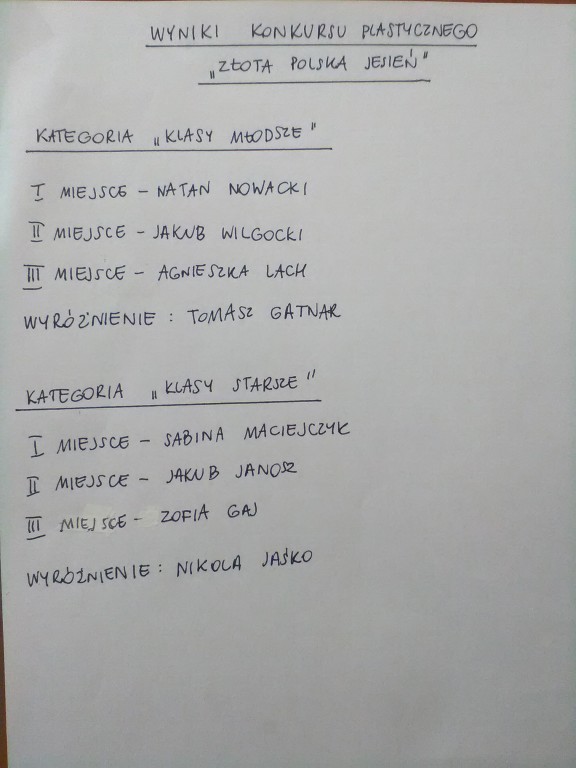 WYNIKI KONKURSU PLASTYCZNEGO
„ZŁOTA POLSKA JESIEŃ"
KATEGORIA „KLASY MŁODSZE"
I MIEJSCE - NATAN NOWACKI
II MIEJSCE - JAKUB WILGOCKI
III MIEJSCE - AGNIESZKA LACH
WYRÓŻNIENIE : TOMASZ GATNAR
KATEGORIA „KLASY STARSZE"
I MIEJSCE - SABINA MACIEJCZYK
II MIEJSCE - JAKUB JANOSZ
III MIEJSCE - ZOFIA GAJ
WYRÓŻNIENIE : NIKOLA JAŚKO